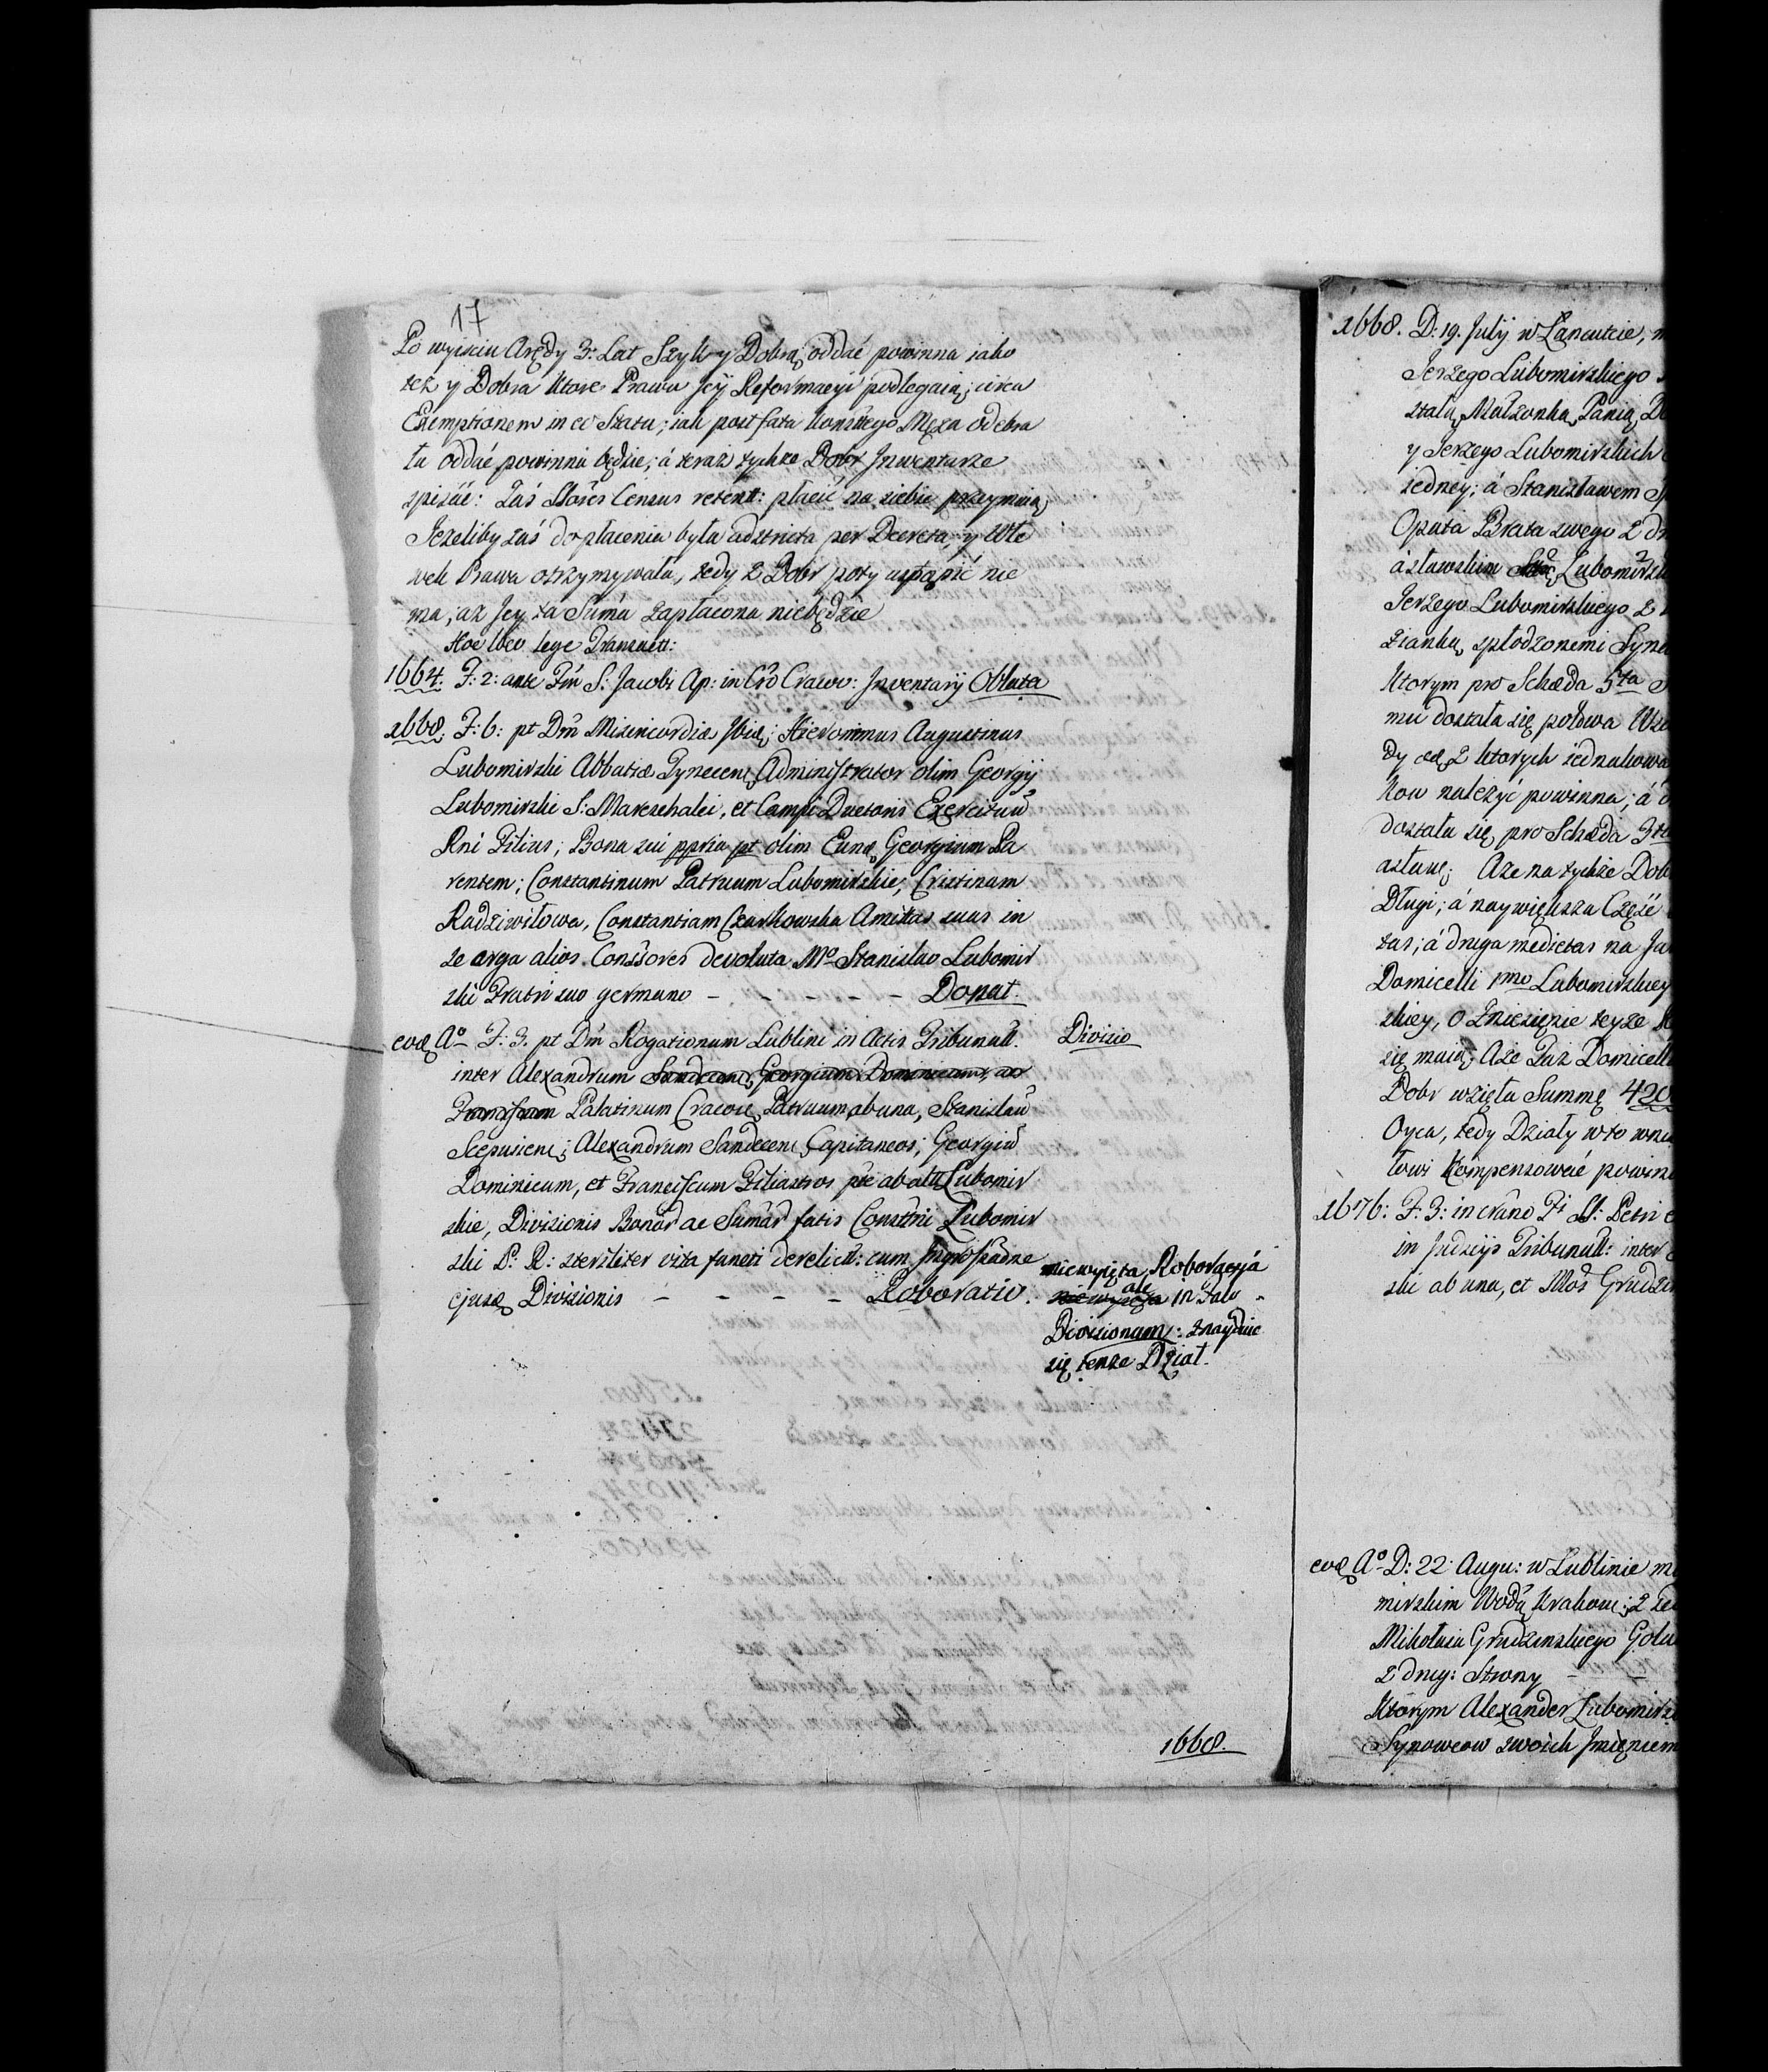 17
Po wyisciu Arędy 3: Lat Szyk y Dobra oddać powinna iako
też y Dobra ktore Prawu Jey Reformacyi podlegaią; circa
Exemptionem in eo Statu; iak post fata Konskiego Męża odebra
ła oddać powinna będzie; á teraz tychże Dobr Inwentarze
spisáć: Zaś Census retent: płacić na siebie przyimuią,
Jezeliby zaś do płacenia była adstricta per Decreta, y Wle
wek Prawa otrzymywała, tedy z Dobr poty ustąpić nie
ma, aż Jey ta Suma zapłacona niebędzie
Hoc loco lege Transact:
1664. F: 2: ante Fm S. Jacobi Ap: in Cro Cracov: Inventarij Oblata
1668. F: 6: pt Dm Misericordiæ Hieronimus Augustinus
Lubomirski Abbatiæ Tynecens Administrator olim Georgij
Lubomirski S: Mareschalci, et Campi Ductoris Exercituu
Rni Filius; Bona sui ppria pt olim Eund Georgium Pa
rentem; Constantinum Patruum Lubomirskie, Cristinam
Radziwiłowa, Constantiam Czarkowska Amitas suas in
se erga alios Conssores devoluta Mco Stanislao Lubomir
ski Fratri suo germano - - - - - Donat.
eod Ao F: 3. pt Dm Rogationum Lublini in Actis Tribunall. Divisio
inter Alexandrum Sandecens, Georgium Dominicum, ac
Palatinum Cracov, Patruum ab una, Stanislau
Scepusiens; Alexandrum Sandecens Capitaneos; Georgiu
Dominicum, et Franciscum Filiastros pte ab alta Lubomir
skie, Divisionis Bonor ac Sumar fatis Constni Lubomir
ski P: R: steriliter vita functi derelict: cum Ingrossatne
ejusd Divisionis - - - - - Roboratio.
niewyięta Roboracyja
niewyięta ale in Falo
Divisionum: znaydzie
się tenże Dział.
1668.
1668. D: 19. Julij w Łancucie,
Jerzego Lubomirskiego
stału Małżonką Panią
y Jerzego Lubomirskich
iedney; á Stanisławem
Opata Brata swego z
ásławskim Lubomirsk
Jerzego Lubomirskiego z
zianką spłodzonemi Syna
Ktorym pro Scheda 5ta
mu dostała się połowa
dy od z ktorych iednakowa
kow należyc powinna; á
dostała się pro Scheda 3tia
asław; Aże na tychże Dob
Długi; á naywiększa Część
tas; á druga medietas na
Domicelli 1mo Lubomirskiey
skiey, o Zniesienie teyże
się maią; Aże Taż Domicell
Dobr wzięła Summę 420
Oyca, tedy Działy w to
łowi Kompensować powin
1676: F: 3: in crâno Fi SS: Petri
in Judicijs Tribunall: inter
ski ab una, et Mos Grudzin
eod Ao D: 22 Augu: w Lublinie
mirskim Wodą Krakow:
Mikołaia Grudzinskiego
z drug: Strony -
Ktorym Alexander Lubomirs
Synowcow swoich Imieniem